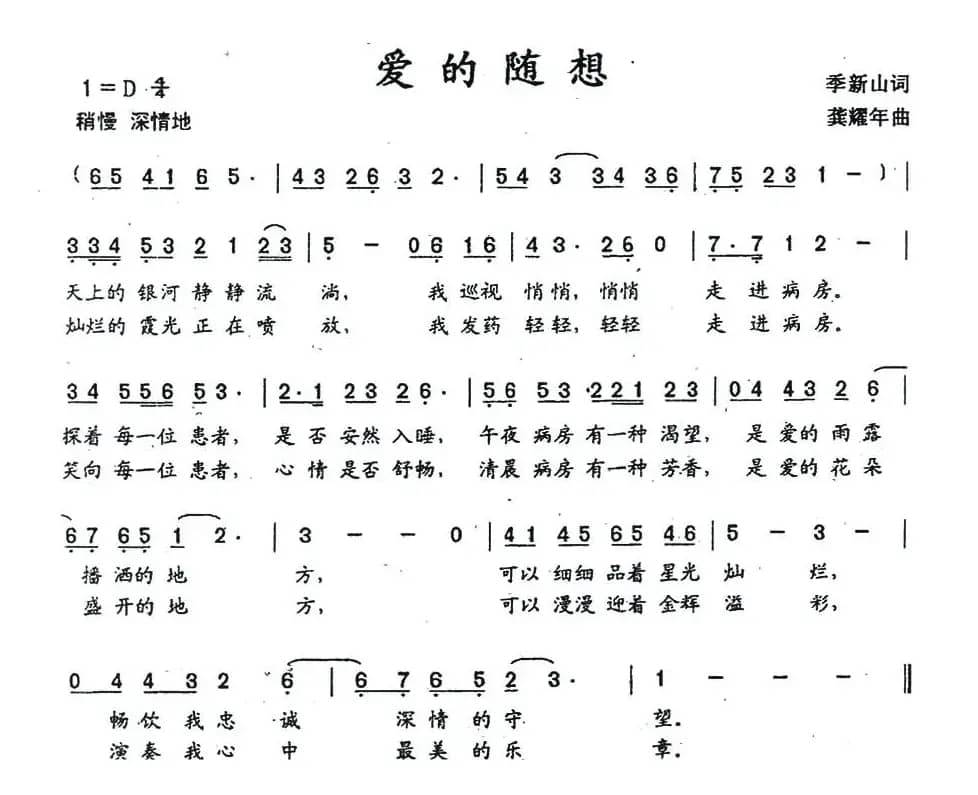 爱的随想
1=D 4/4
季新山词
稍慢 深情地
龚耀年曲
(65 41 65· | 43 26 32· | 54 3 34 36 | 75 23 1 -) |
334 53 2 1 23 | 5 - 06 16 | 43· 26 0 | 7·7 1 2 - |
天上的 银河 静 静 流 淌, 我 巡视 悄悄, 悄悄 走 进 病 房。
灿烂的 霞光 正 在 喷 放, 我 发药 轻轻, 轻轻 走 进 病 房。
34 556 53· | 2·1 23 26· | 56 53 ·221 23 | 04 43 2 6 |
探着 每一位 患者, 是 否 安然 入睡, 午夜 病房 有一种 渴望, 是 爱的 雨 露
笑向 每一位 患者, 心 情 是否 舒畅, 清晨 病房 有一种 芳香, 是 爱的 花 朵
67 65 1 2· | 3 - - 0 | 41 45 65 46 | 5 - 3 - |
播 洒的 地 方, 可以 细细 品着 星光 灿 烂,
盛 开的 地 方, 可以 漫漫 迎着 金辉 溢 彩,
0 4 4 3 2 6 | 6 7 6 5 2 3· | 1 - - - ‖
畅 饮 我 忠 诚 深 情 的 守 望。
演 奏 我 心 中 最 美 的 乐 章。